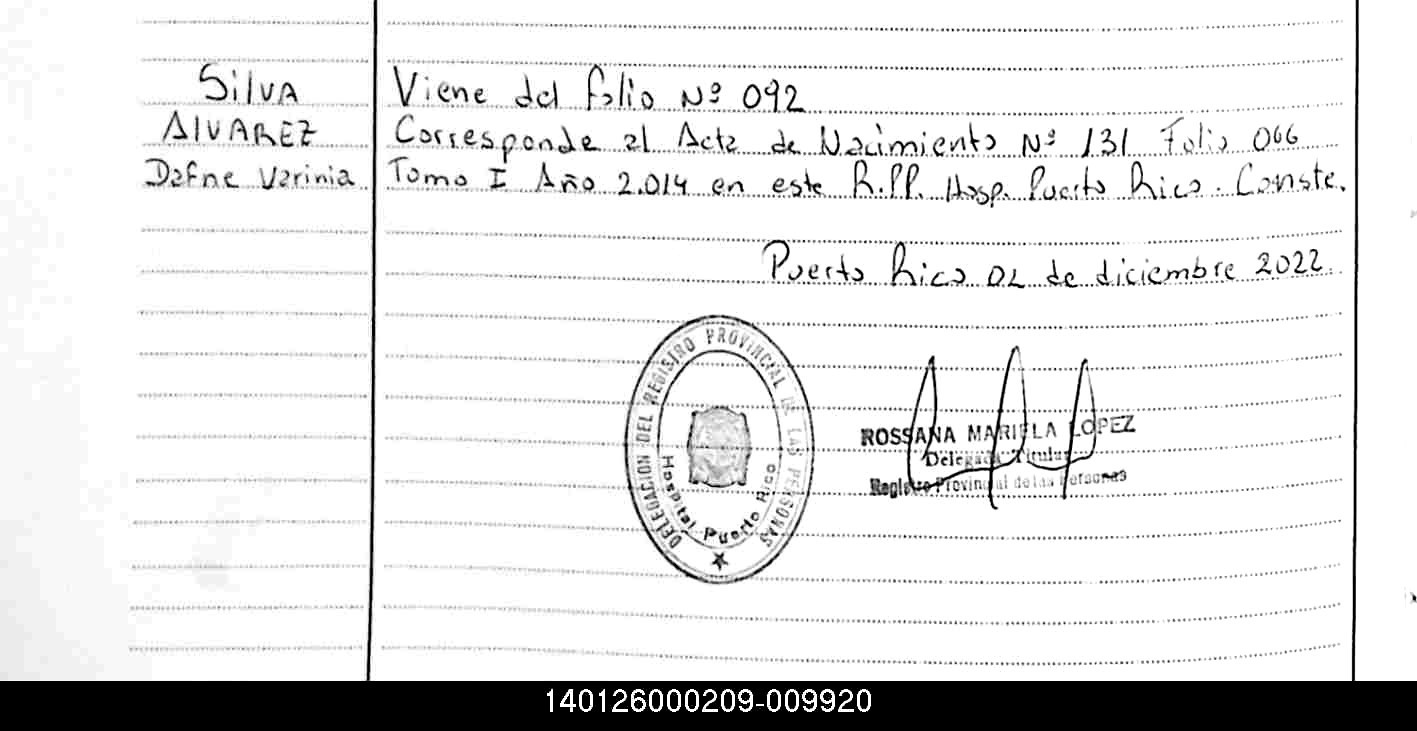 Silva
Alvarez
Dafne Varinia
Viene del folio Nº 092
Corresponde al Acta de Nacimiento Nº 131 Folio 066
Tomo I Año 2.014 en este R.P.P. Hosp. Puerto Rico. Conste.
Puerto Rico 02 de diciembre 2022.
DELEGACION DEL REGISTRO PROVINCIAL DE LAS PERSONAS
Hospital Puerto Rico
ROSSANA MARIELA LOPEZ
Delegada Titular
Registro Provincial de las Personas
140126000209-009920